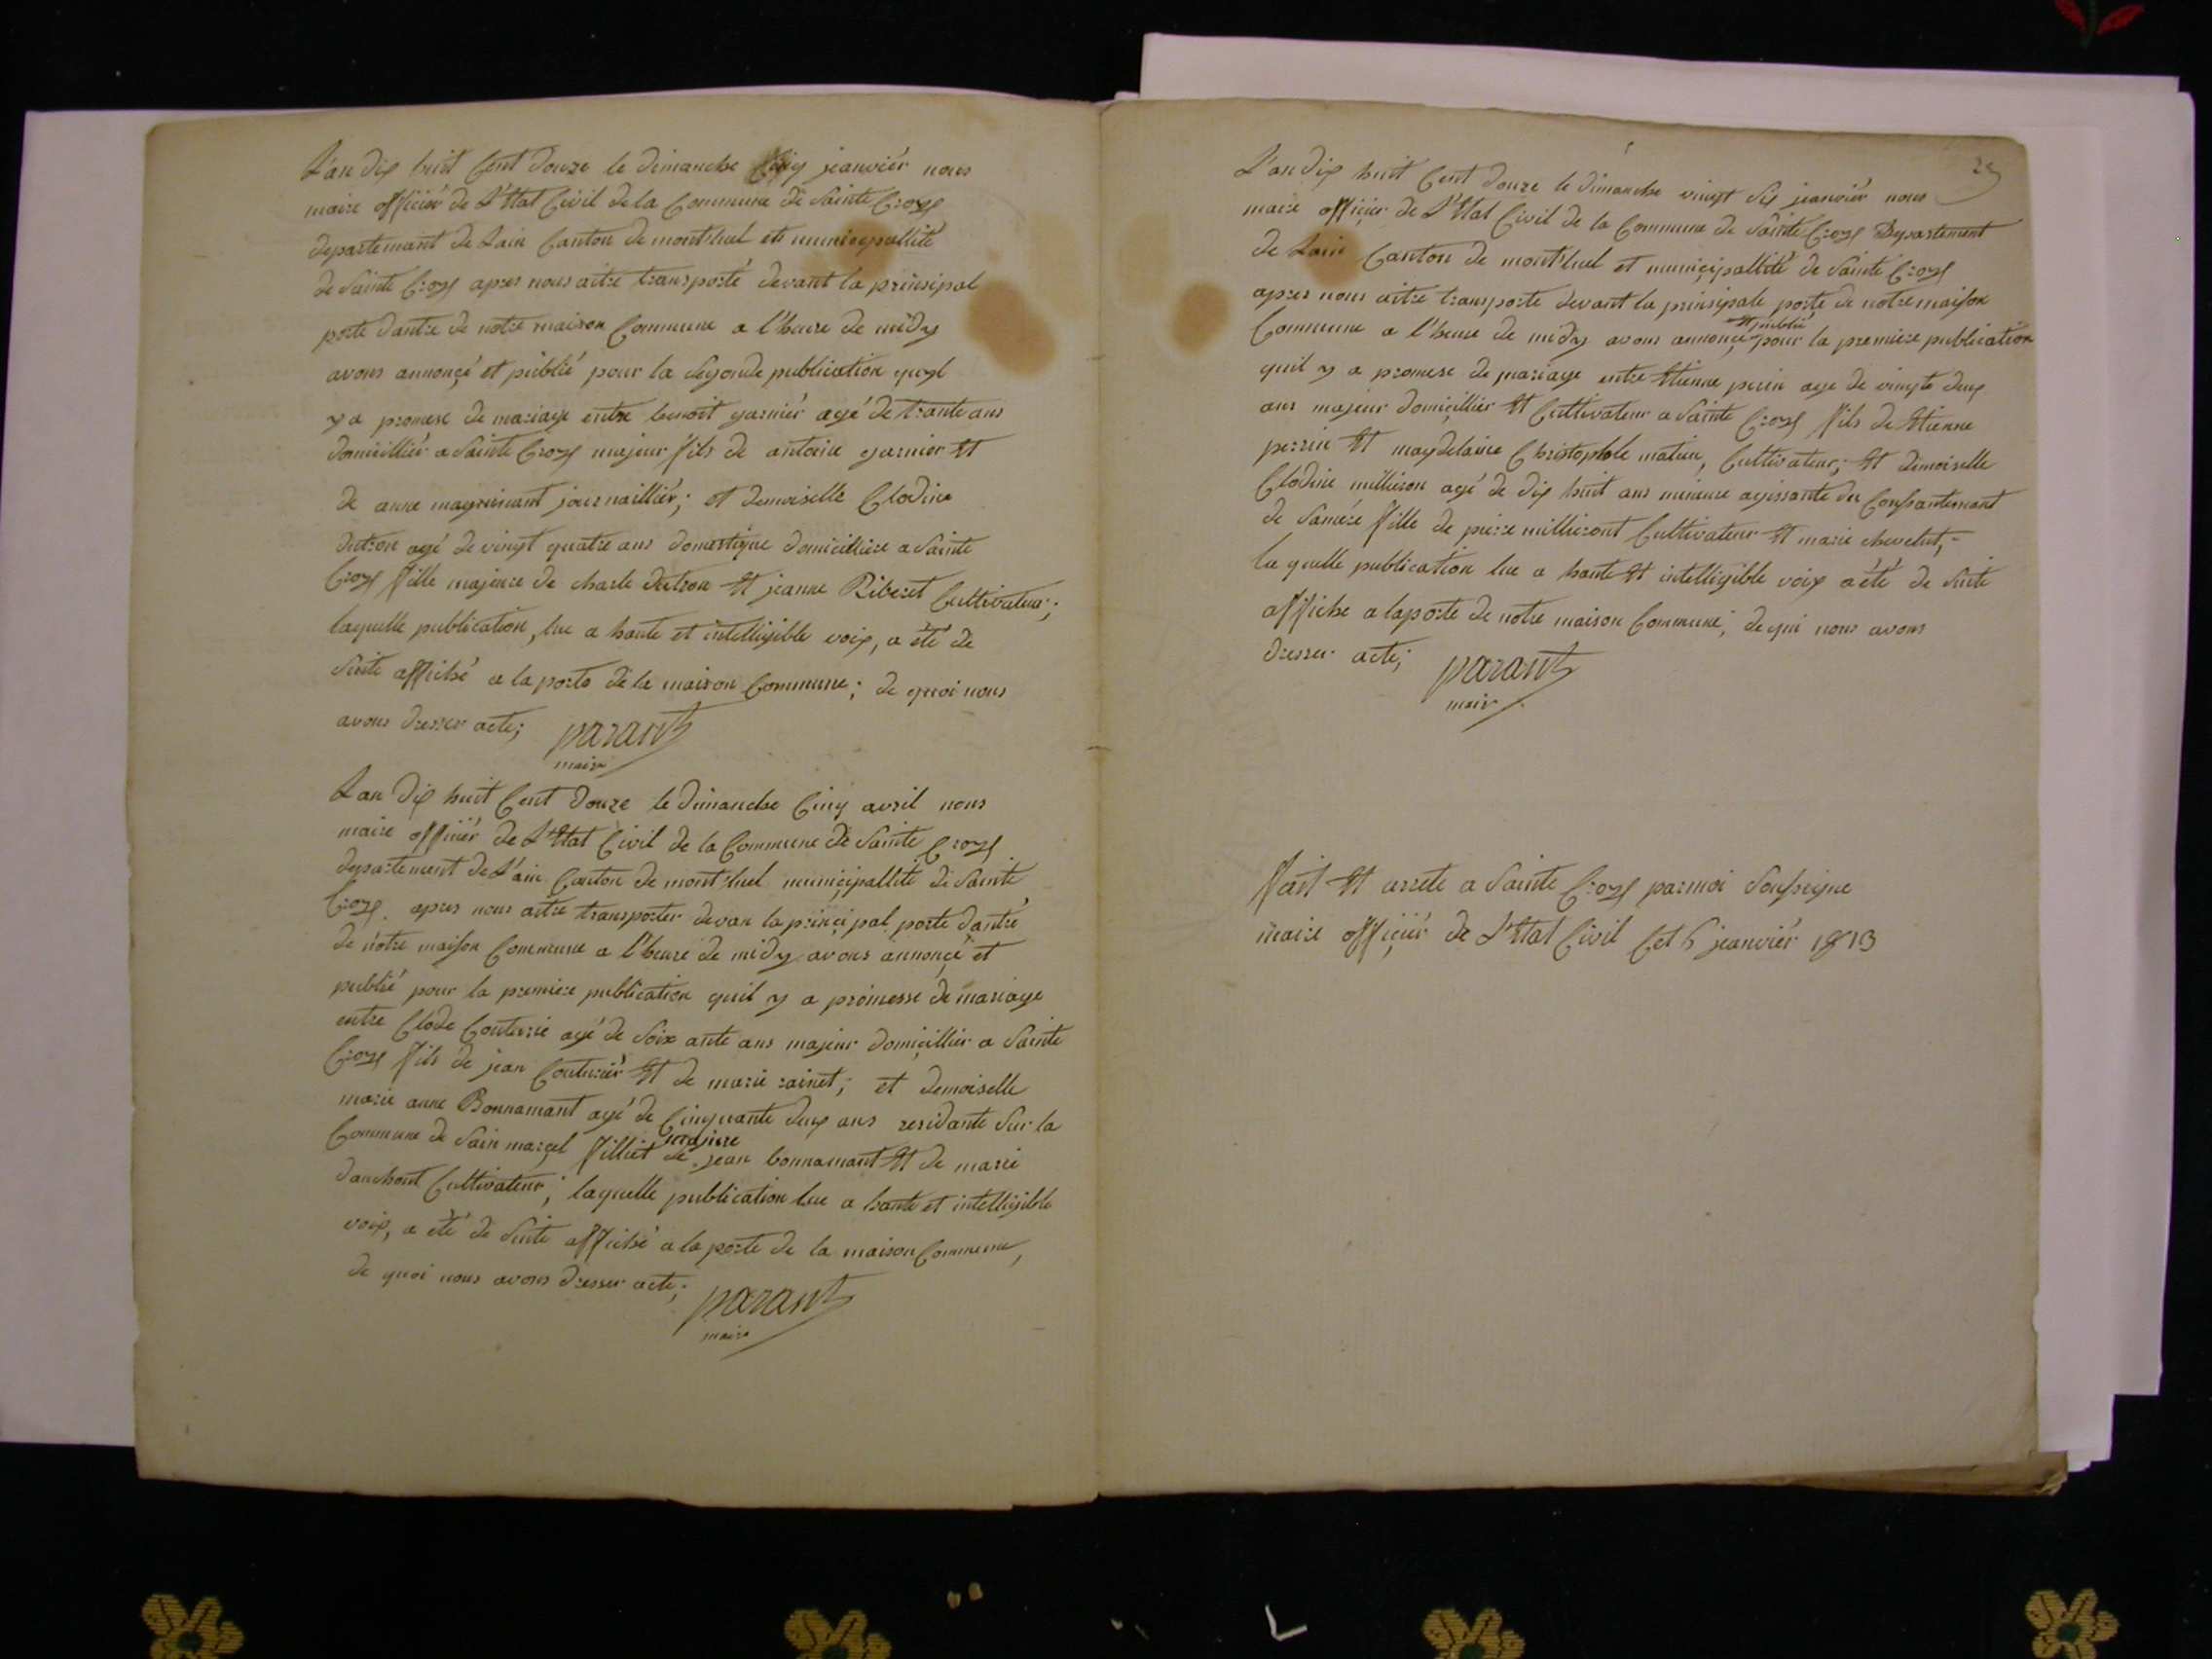 L'an dix huit Cent douze le dimanche Cinq jeanviér nous
maire officiér de L'Etat Civil de la Commune de Sainte Croys
departemant de Lain Canton de mont'luel et municipallité
de Sainte Croys apres nous aitre transporté devant la prinsipal
porte dantre de notre maison Commune a l'heure de midy
avons annonçé et publié pour la segonde publication quyl
y a promese de mariage entre benoit garniér agé de trante ans
domicilliér a Sainte Croys majeur fils de antoine garnier Et
de anne magninant journailliér; et demoiselle Clodine
dutron agé de vingt quatre ans domestique domicilliere a Sainte
Croys fille majeure de charle dutron Et jeanne Riberet Cultivateur;
laquelle publication, lue a haute et intelligible voix, a été de
suite affiché a la porte de la maison Commune; de quoi nous
avons dresser acte; parant
maire
Lan dix huit Cent douze le dimanche Cinq avril nous
maire officiér de L'Etat Civil de la Commune de Sainte Croys
departement de L'ain Canton de mont'luel municipallité de Sainte
Croys. apres nous aitre transporter devan la prinçipal porte dantré
de notre maison Commune a l'heure de midy avons annonçé et
publié pour la premiere publication quil y a promesse de mariage
entre Clode Couturié agé de Soix ante ans majeur domicillier a Sainte
Croys fils de jean Couturiér Et de marie rainet; et demoiselle
marie anne Bonnamant agé de Cinquante deux ans residante Sur la
majeure
Commune de Sain marçel fille de jean bonnamant Et de marie
danchont Cultivateur; laquelle publication lue a haute et intelligible
voix, a été de suite affiché a la porte de la maison Commune,
de quoi nous avons dresser acte; parant
maire
29
L'an dix huit Cent douze le dimanche vingt six jeanviér nous
maire officier de L'Etat Civil de la Commune de Sainte Croys Departement
de Lain Canton de mont'luel et municipallité de Sainte Croys
apres nous aitre transporte devant la prinsipale porte de notre maison
Et publié
Commune a l'heure de midy avons annonçé pour la premiere publication
quil y a promese de mariage entre Etienne perin age de vingte deux
ans majeur domicillier Et Cultivateur a Sainte Croys fils de Etienne
perrin Et magdelaine Christophle matieu, Cultivateur; Et dimoiselle
Clodine millieron agé de dix huit ans mineure agissante du Consantemant
de Samére fille de pierre millieront Cultivateur Et marie chevelut,-
la quelle publication lue a haute Et intelligible voix a été de suite
affiche a la porte de notre maison Commune, de qui nous avons
dresser acte; parant
mair
Fait Et arrete a Sainte Croys par moi Soussigne
maire officiér de L'Etat Civil Cet 6 jeanviér 1813